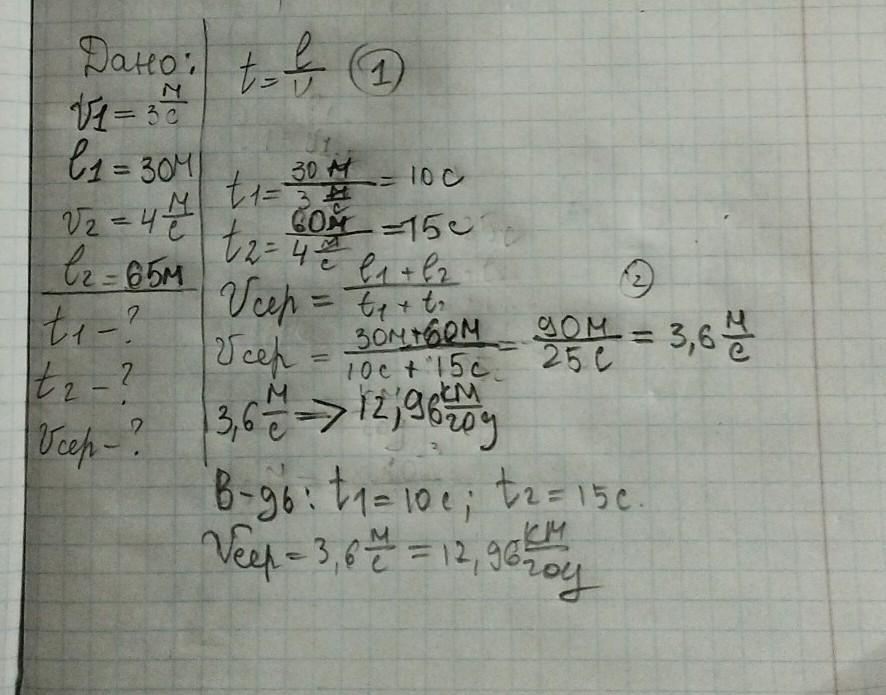 Дано:
v1 = 3 м/с
l1 = 30м
v2 = 4 м/с
l2 = 65м
t1 - ?
t2 - ?
Vсер - ?
t = l/v (1)
t1 = 30 м / 3 м/с = 10с
t2 = 60м / 4 м/с = 15с
Vсер = l1 + l2 / t1 + t2 (2)
Vсер = 30м+60м / 10с + 15с = 90м / 25с = 3,6 м/с
3,6 м/с => 12,96 км/год
В-дь: t1 = 10с; t2 = 15с.
Vсер = 3,6 м/с = 12,96 км/год